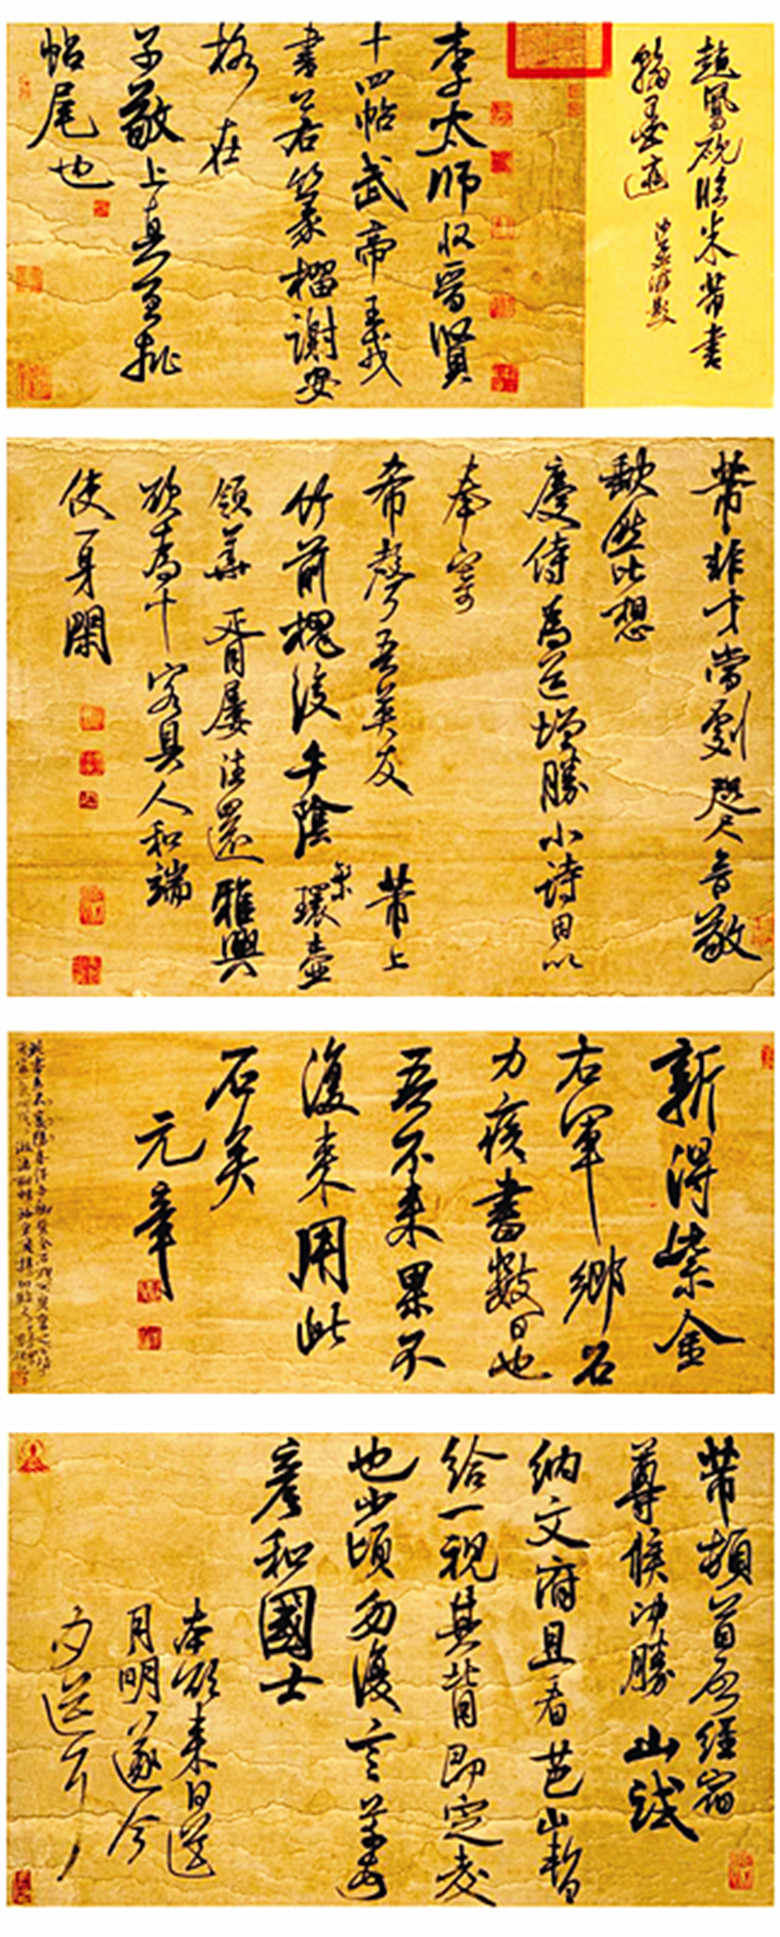 趙鳳硯臨米芾書
翰墨
李太師收晉賢
十四帖武帝王戎
書若篆籀謝安
格在
子敬上真宜批
帖尾也
芾非才當劇咫尺音敬
缺然比想
慶侍為道增勝小詩因以
奉寄
希聲吾英友 芾上
竹前槐後午陰繁環壺
領華胥屢往還雅興
欲為十客具人和端
使一身閑
新得紫金
右軍鄉石
力疾書數日也
吾不來果不
復來用此
石矣
元章
芾頓首啓經宿
尊候沖勝山試
納文府且看芭山暫
給一視其背即定交
也少頃勿復言芾頓首
彥和國士
本欲來日送
月明遂今
夕送耳